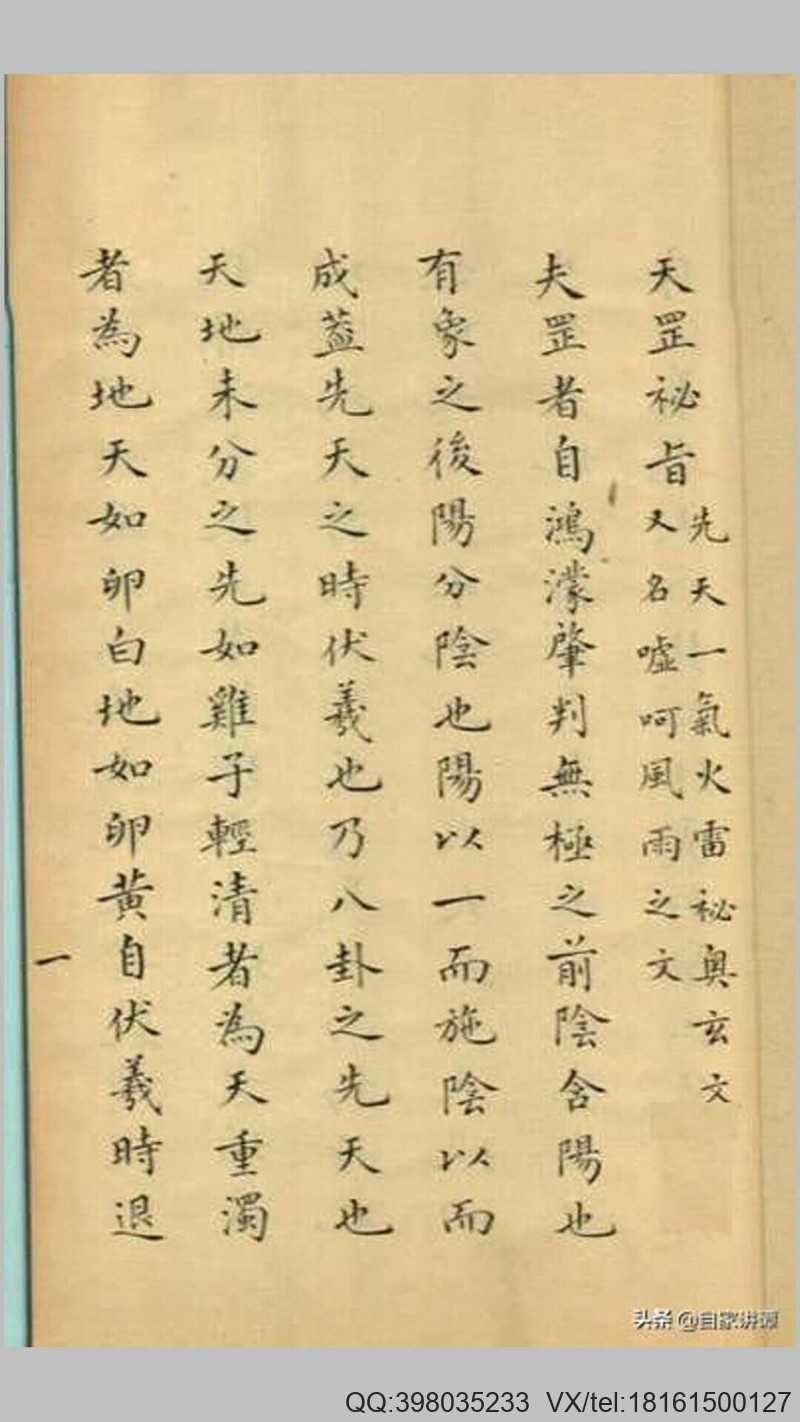 天罡祕旨
先天一氣火雷祕奧玄文
又名噓呵風雨之文
夫罡者自鴻濛肇判無極之前陰含陽也
有象之後陽分陰也陽以一而施陰以而
成蓋先天之時伏羲也乃八卦之先天也
天地未分之先如雞子輕清者為天重濁
者為地天如卵白地如卵黃自伏羲時退
一
头条 @自家讲源
QQ:398035233 VX/tel:18161500127